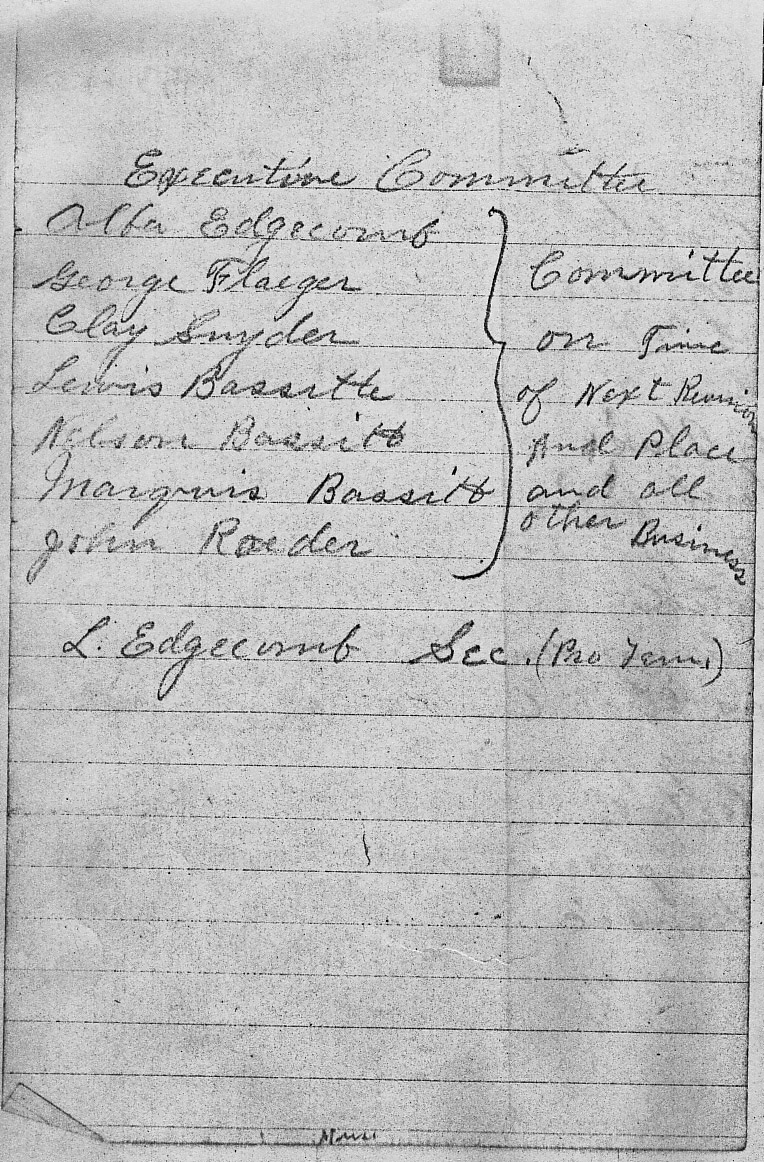 Executive Committee
Alba Edgecomb
George Flaeger
Clay Snyder
Lewis Bassitte
Nelson Bassitt
Marquis Bassitt
John Roeder
Committee
on Time
of Next Reunion
And Place
and all
other Business
L. Edgecomb Sec. (Pro Tem.)